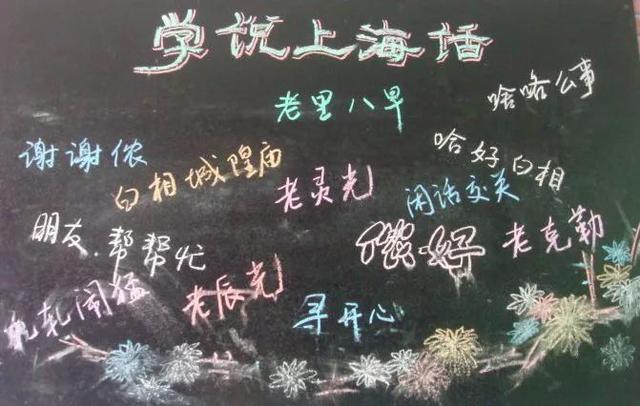 学说上海话
老里八早
啥咯公事
谢谢侬
白相城隍庙
老灵光
哈好白相
闲话交关
朋友.帮帮忙
侬好
老克勒
轧闹猛
老辰光
寻开心